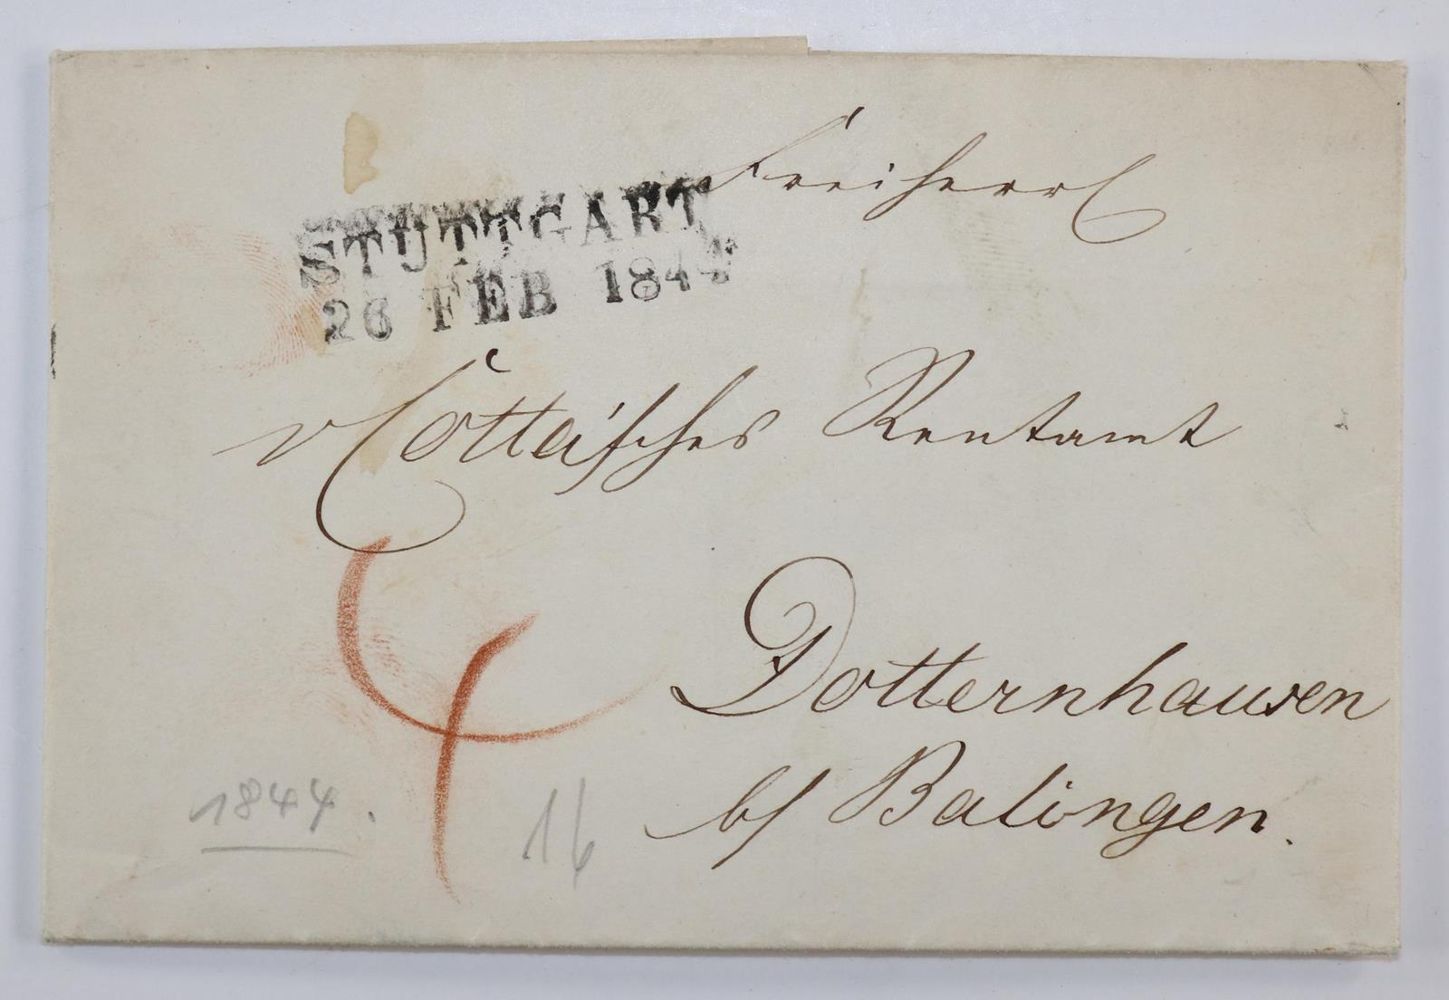 Freiherrl
STUTTGART
26 FEB 1844
v Cotta'sches Rentamt
4
Dotternhausen
b/ Balingen.
1844.
16